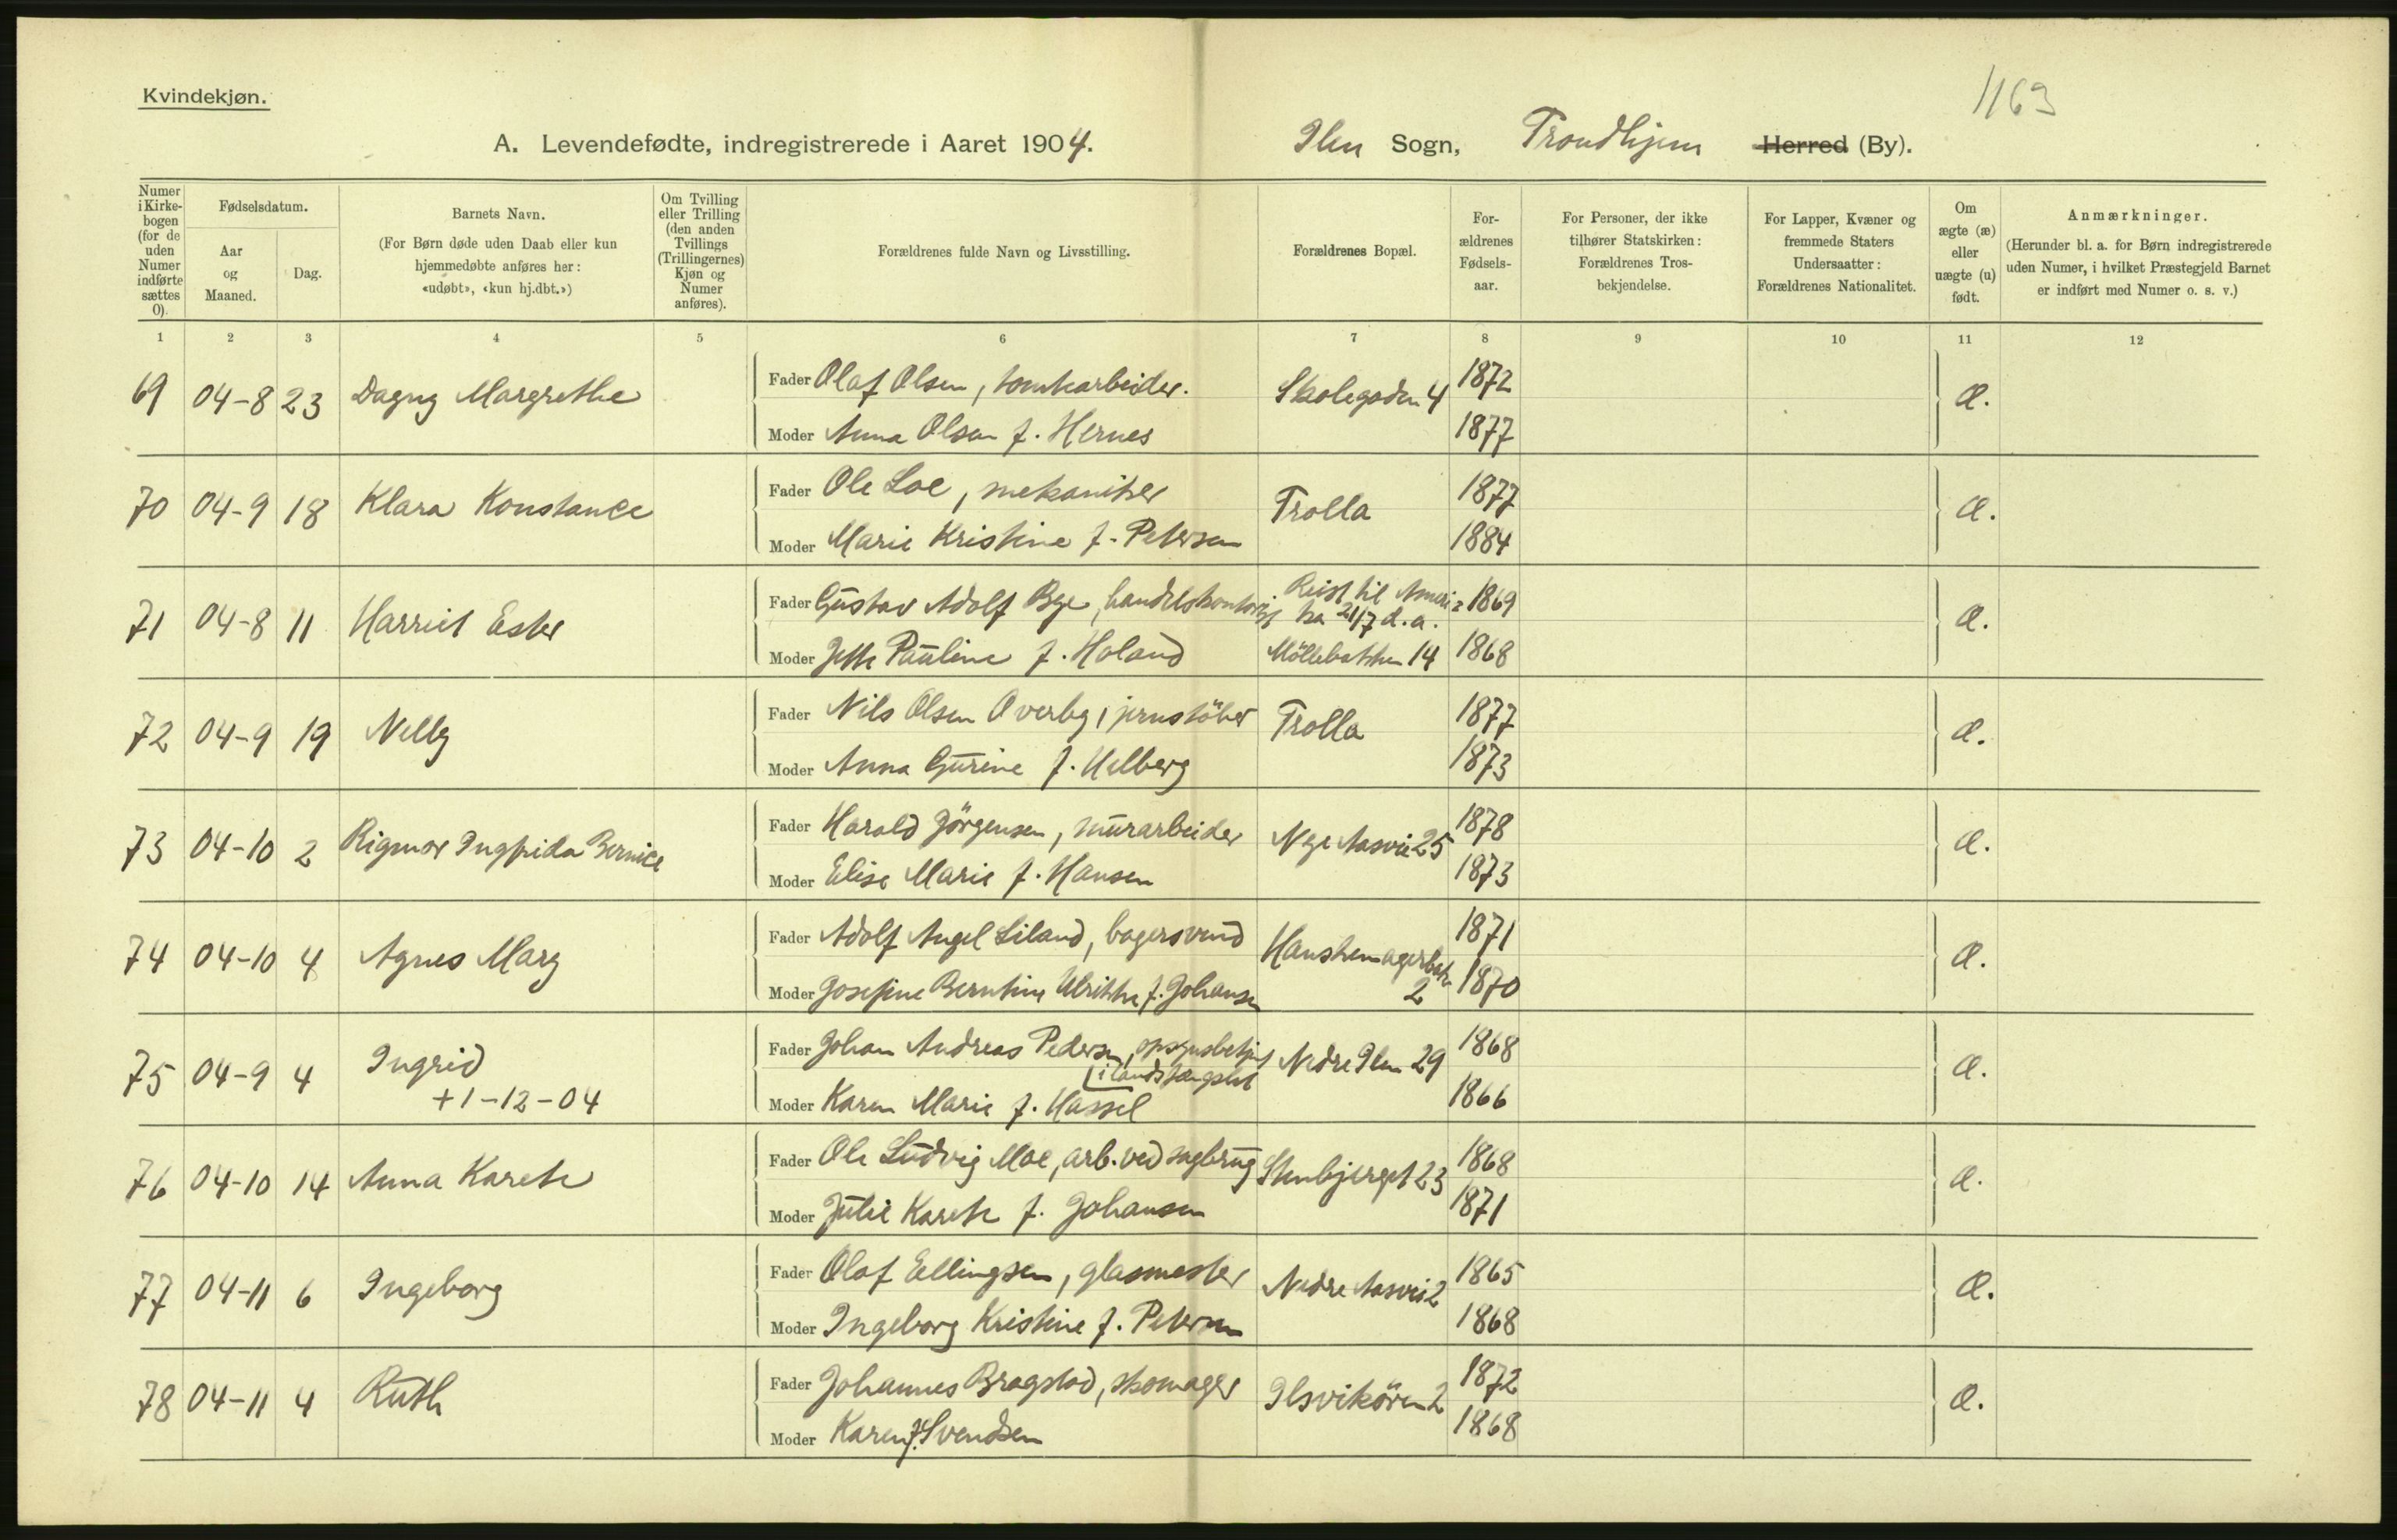 Kvindekjøn.
1163
A. Levendefødte, indregistrerede i Aaret 1904. Ilen Sogn, Trondhjem Herred (By).
Numer i Kirkebogen (for de uden Numer indførte sættes 0).
Fødselsdatum.
Aar og Maaned.
Dag.
Barnets Navn.
(For Børn døde uden Daab eller kun hjemmedøbte anføres her: «udøbt», «kun hj.dbt.»)
Om Tvilling eller Trilling (den anden Tvillings (Trillingernes) Kjøn og Numer anføres).
Forældrenes fulde Navn og Livsstilling.
Forældrenes Bopæl.
Forældrenes Fødselsaar.
For Personer, der ikke tilhører Statskirken: Forældrenes Trosbekjendelse.
For Lapper, Kvæner og fremmede Staters Undersaatter: Forældrenes Nationalitet.
Om ægte (æ) eller uægte (u) født.
Anmærkninger.
(Herunder bl. a. for Børn indregistrerede uden Numer, i hvilket Præstegjeld Barnet er indført med Numer o. s. v.)
1 2 3 4 5 6 7 8 9 10 11 12
69 04-8 23 Dagny Margrethe Fader Olaf Olsen, tomtearbeider. Skolegaden 4 1872 Æ.
Moder Anna Olsen f. Hernes 1877
70 04-9 18 Klara Konstance Fader Ole Loe, mekaniker Trolla 1877 Æ.
Moder Marie Kristine f. Petersen 1884
71 04-8 11 Harriet Ester Fader Gustav Adolf Bye, handelskontorist Reist til Ameri= 1869 Æ.
ka 21/7 d.a.
Moder Pauline f. Holand Möllebakken 14 1868
72 04-9 19 Nelly Fader Nils Olsen Overby, jernstöber Trolla 1877 Æ.
Moder Anna Gurine f. Helberg 1873
73 04-10 2 Rigmor Ingfrida Bernice Fader Harald Jörgensen, murarbeider Nye Aasvei 25 1878 Æ.
Moder Elise Marie f. Hansen 1873
74 04-10 4 Agnes Mary Fader Adolf Angel Liland, bagersvend Hanskemagerbak. 1871 Æ.
Moder Josefine Berntine Ulrikke f. Johansen 2 1870
75 04-9 4 Ingrid Fader Johan Andreas Pedersen, opsynsbetjent Nedre Ilen 29 1868 Æ.
+1-12-04 i landsfængslet
Moder Karen Marie f. Hassel 1866
76 04-10 14 Anna Karete Fader Ole Ludvig Moe, arb. ved sagbrug Stenbjerget 23 1868 Æ.
Moder Julie Karete f. Johansen 1871
77 04-11 6 Ingeborg Fader Olaf Ellingsen, glasmester Nedre Aasvei 2 1865 Æ.
Moder Ingeborg Kristine f. Petersen 1868
78 04-11 4 Ruth Fader Johannes Bragstad, skomager Ilsvikören 2 1872 Æ.
Moder Karen f. Svendsen 1868